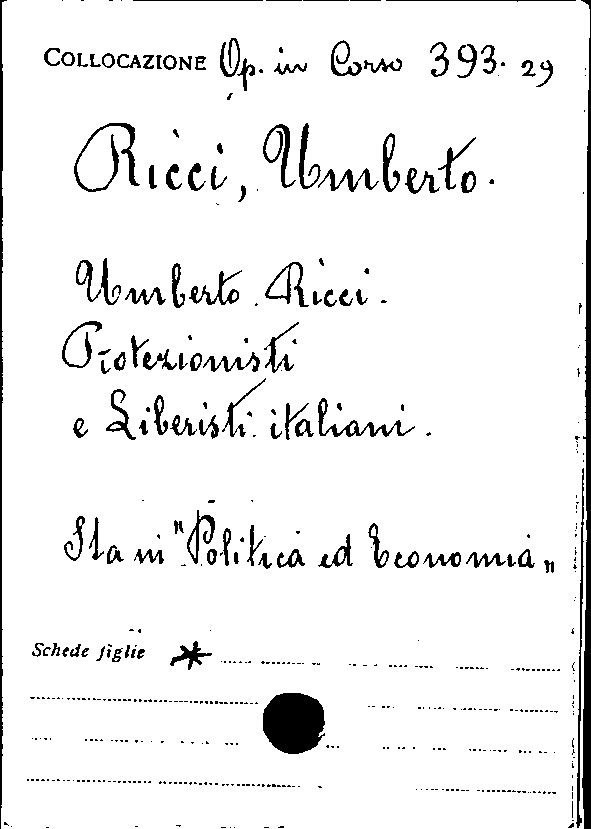 COLLOCAZIONE Op. in Corso 393. 29
Ricci, Umberto.
Umberto Ricci.
Protezionisti
e Liberisti italiani.
Sta in "Politica ed Economia„
Schede figlie *